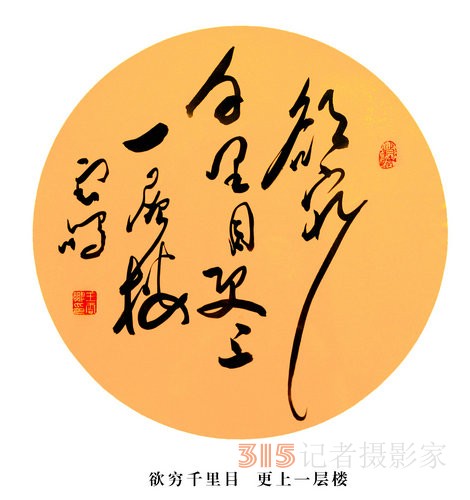 欲穷
千里目更上
一层楼
云鸣
315记者摄影家
欲穷千里目 更上一层楼